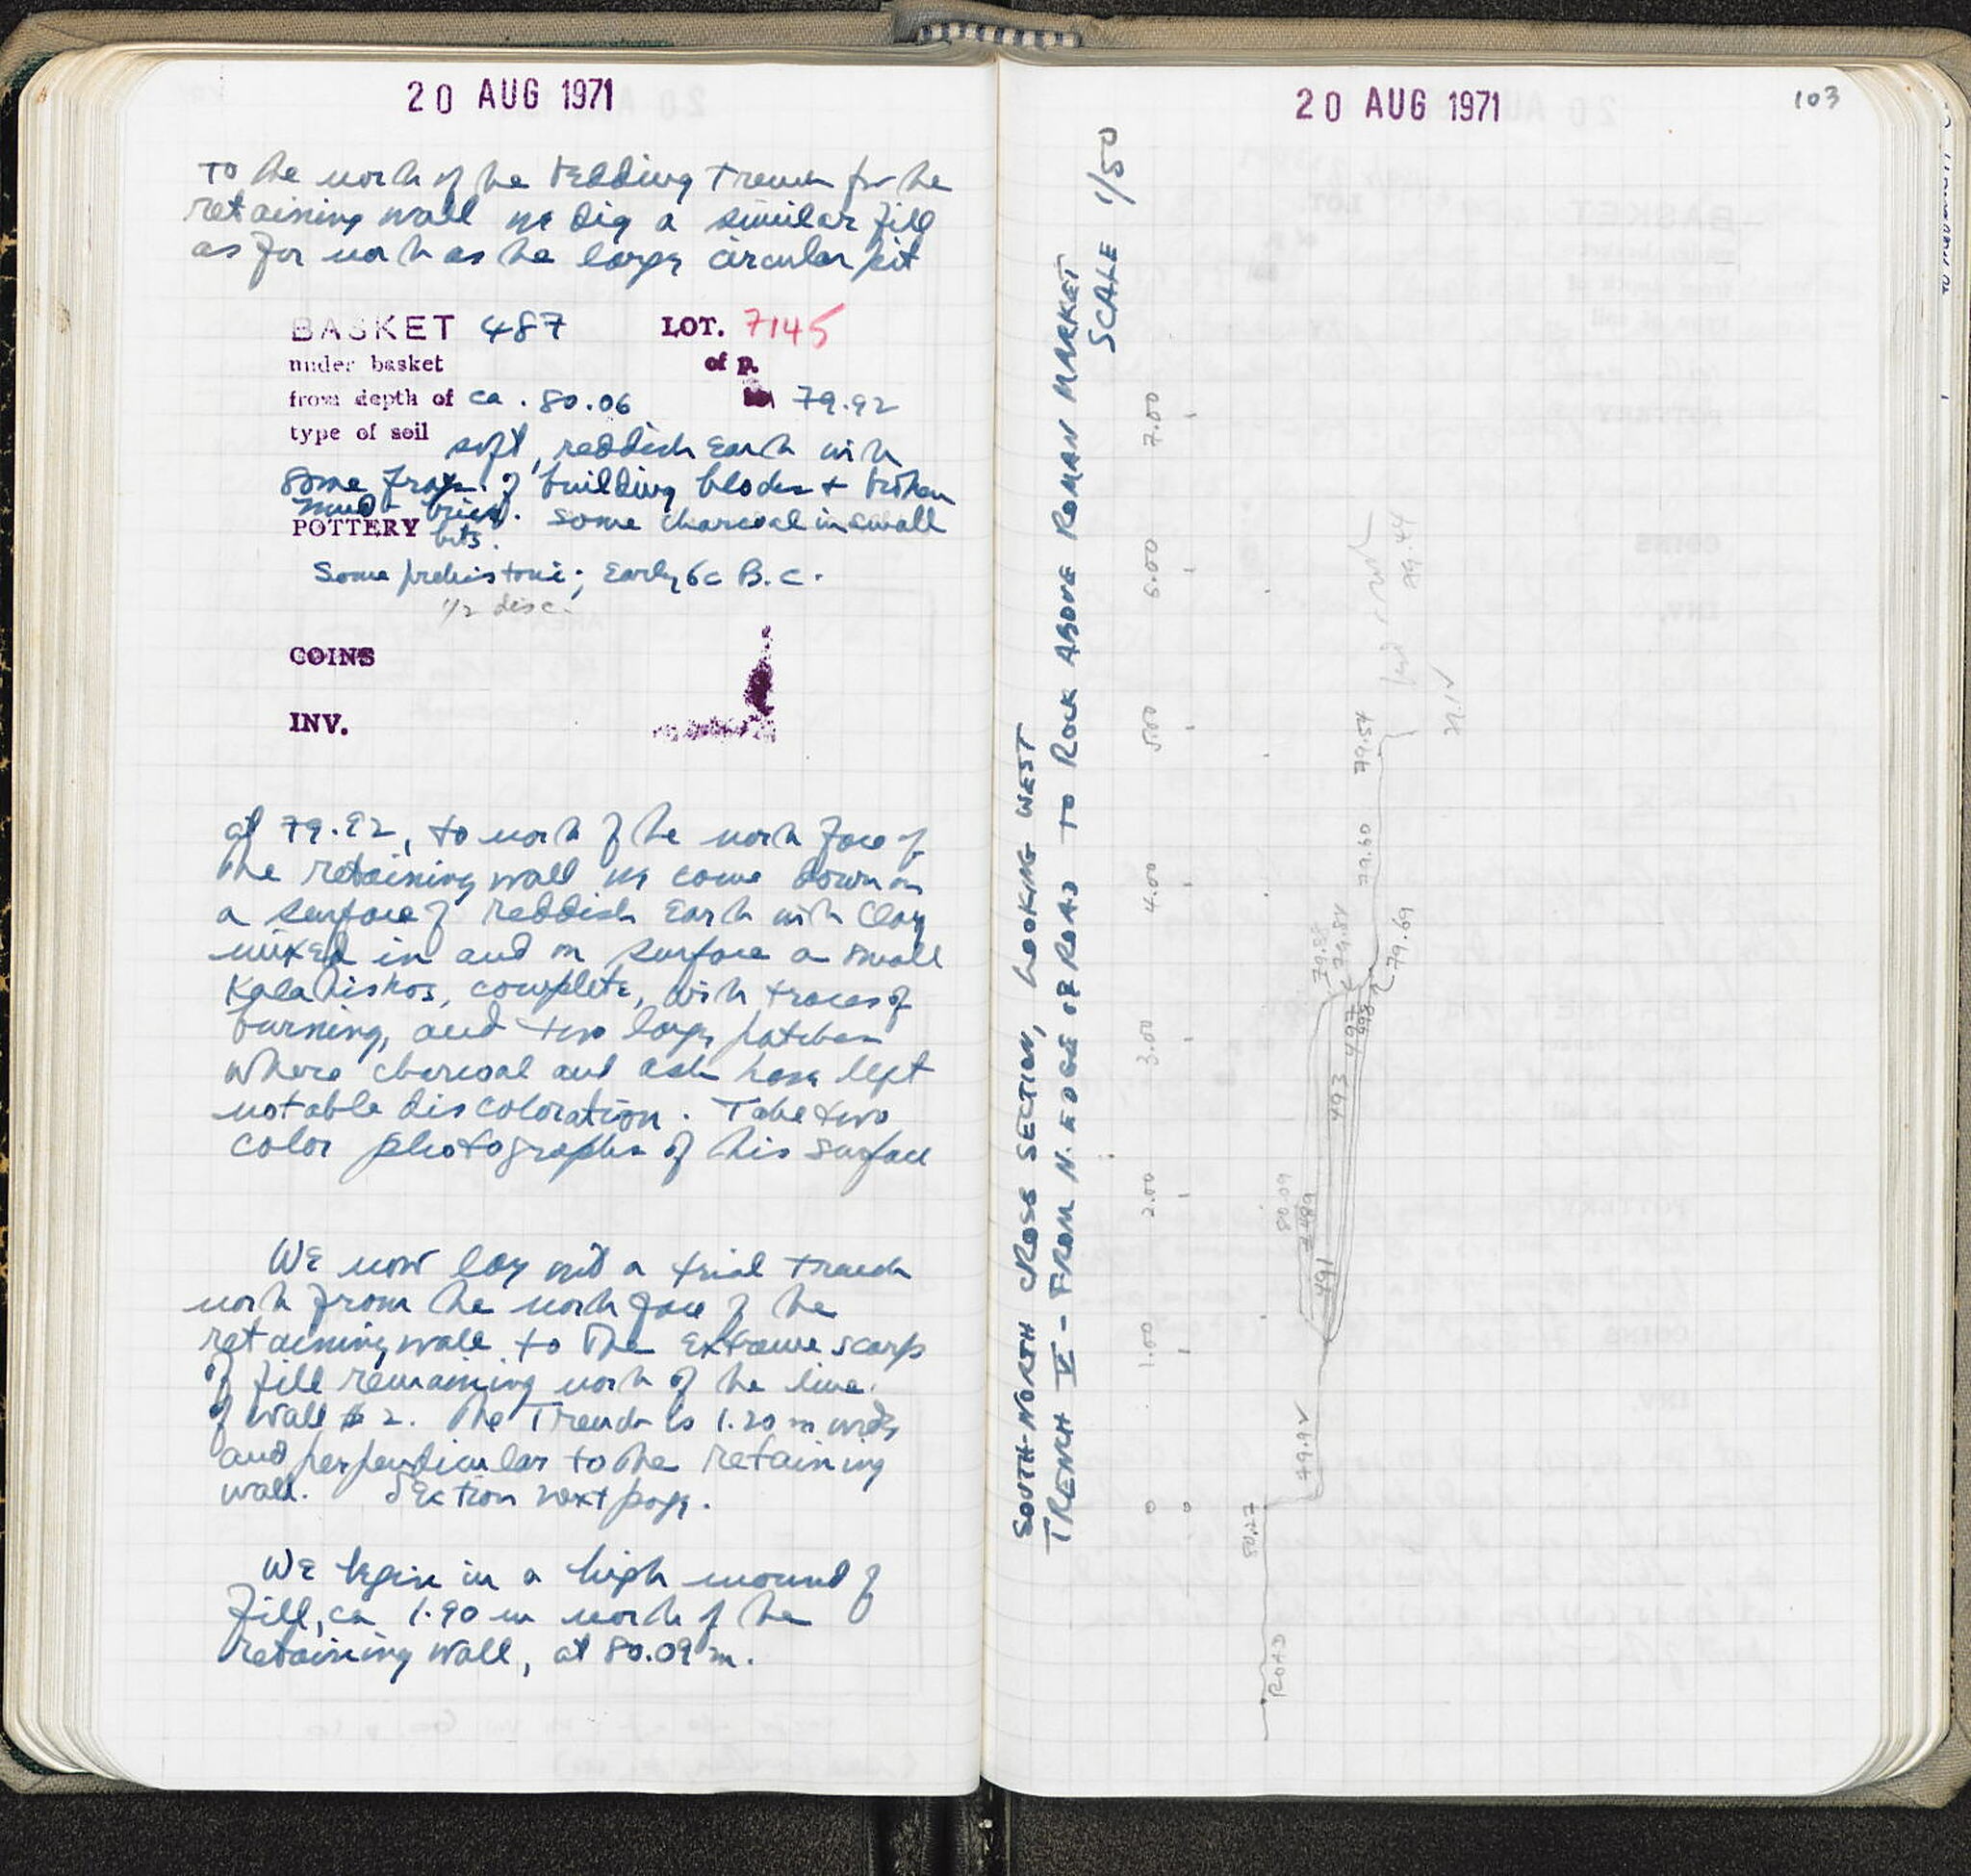 20 AUG 1971
To the north of the bedding trench for the
retaining wall we dig a similar fill
as far north as the large circular pit
BASKET 487 LOT. 7145
under basket of p.
from depth of ca. 80.06 79.92
type of soil soft, reddish earth with
some frags. of building blocks + broken
mud brick. Some charcoal in small
POTTERY bits.
Some prehistoric; Early 6c B.C.
1/2 disc.
COINS
INV.
at 79.92, to north of the north face of
the retaining wall we come down on
a surface of reddish earth with clay
mixed in and on surface a small
Kalathiskos, complete, with traces of
burning, and two large patches
where charcoal and ash have left
notable discoloration. Take two
color photographs of this surface
We now lay out a trial trench
north from the north face of the
retaining wall to the extreme scarp
of fill remaining north of the line
of wall # 2. The Trench is 1.20 m wide
and perpendicular to the retaining
wall. Section next page.
We begin in a high mound of
fill, ca 1.90 m north of the
retaining wall, at 80.09 m.
20 AUG 1971
103
SOUTH-NORTH CROSS SECTION, LOOKING WEST
TRENCH V - FROM N. EDGE OF ROAD TO ROCK ABOVE ROMAN MARKET
SCALE 1/50
0 1.00 2.00 3.00 4.00 5.00 6.00 7.00
0
ROAD
80.27
79.92
80.09
489
491
493
497
498
79.84
79.69
79.60
79.54
79.44